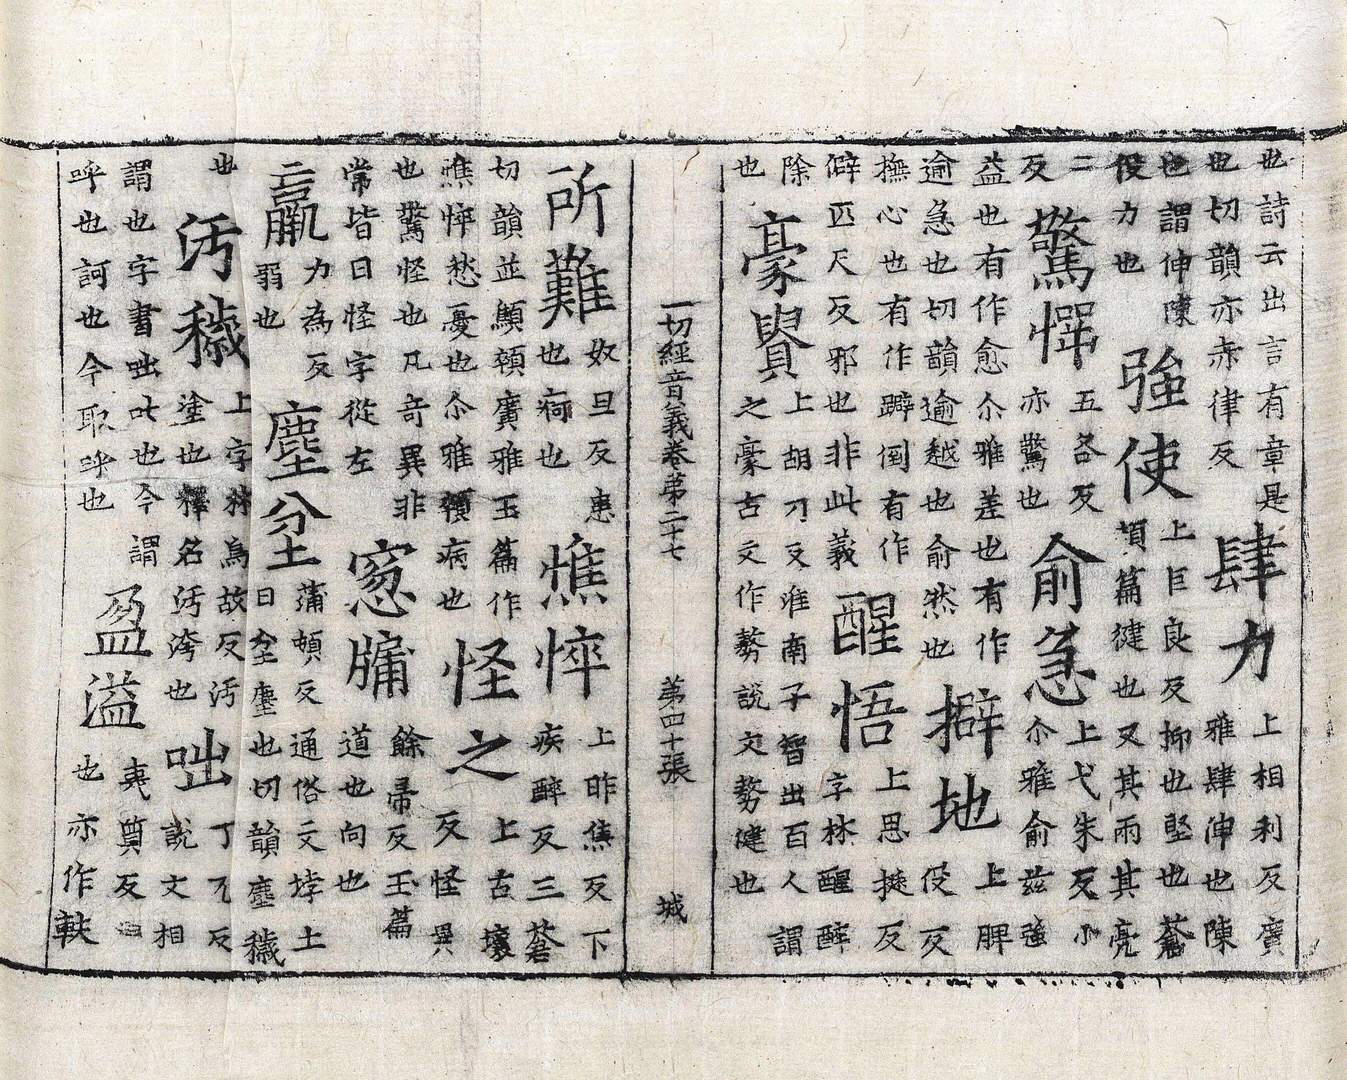 也詩云出言有章是
也切韻亦赤律反
肆力
上相利反廣
雅肆伸也陳
也謂伸陳
役力也
強使
上巨良反抑也堅也蒼
頡篇健也又其兩其亮
二
反
驚愕
五各反
亦驚也
俞急
上弋朱反小
尒雅俞茲強
益也有作愈尒雅差也有作
逾急也切韻逾越也俞然也
擗地
上脾
役反
撫心也有作躃倒有作
僻匹尺反邪也非此義
醒悟
上思挺反
字林醒醉
除
也
豪貴
上胡刀反淮南子智出百人謂
之豪古文作勢說文勢健也
一切經音義卷第二十七 第四十張 城
所難
奴旦反患
也痾也
憔悴
上昨焦反下
疾醉反三蒼
切韻並顦顇廣雅玉篇作
憔悴愁憂也尒雅顇病也
怪之
上古壞
反怪異
也驚怪也凡奇異非
常皆曰怪字從左
窓牖
餘帚反玉篇
道也向也
羸
力為反
弱也
塵坌
蒲頓反通俗文埻土
曰坌塵也切韻塵穢
也
污穢
上字林烏故反污
塗也釋名污洿也
咄
丁兀反
說文相
謂也字書咄叱也今謂
呼也訶也今取呼也
盈溢
夷質反
也亦作軼